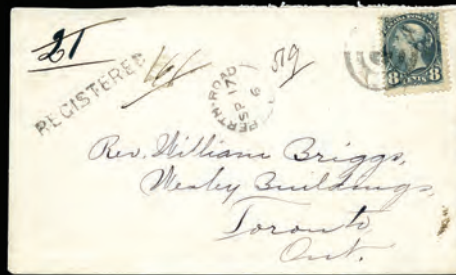 21
REGISTERED
PERTH-ROAD
SP 17
8 8
Rev. William Briggs,
Wesley Buildings,
Toronto,
Ont.